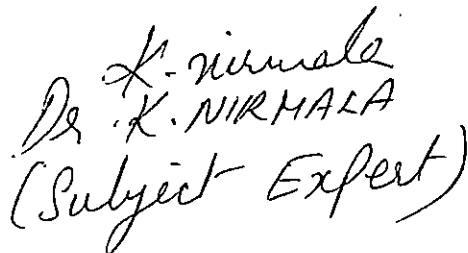 K. nirmala
Dr. K. NIRMALA
(Subject Expert)